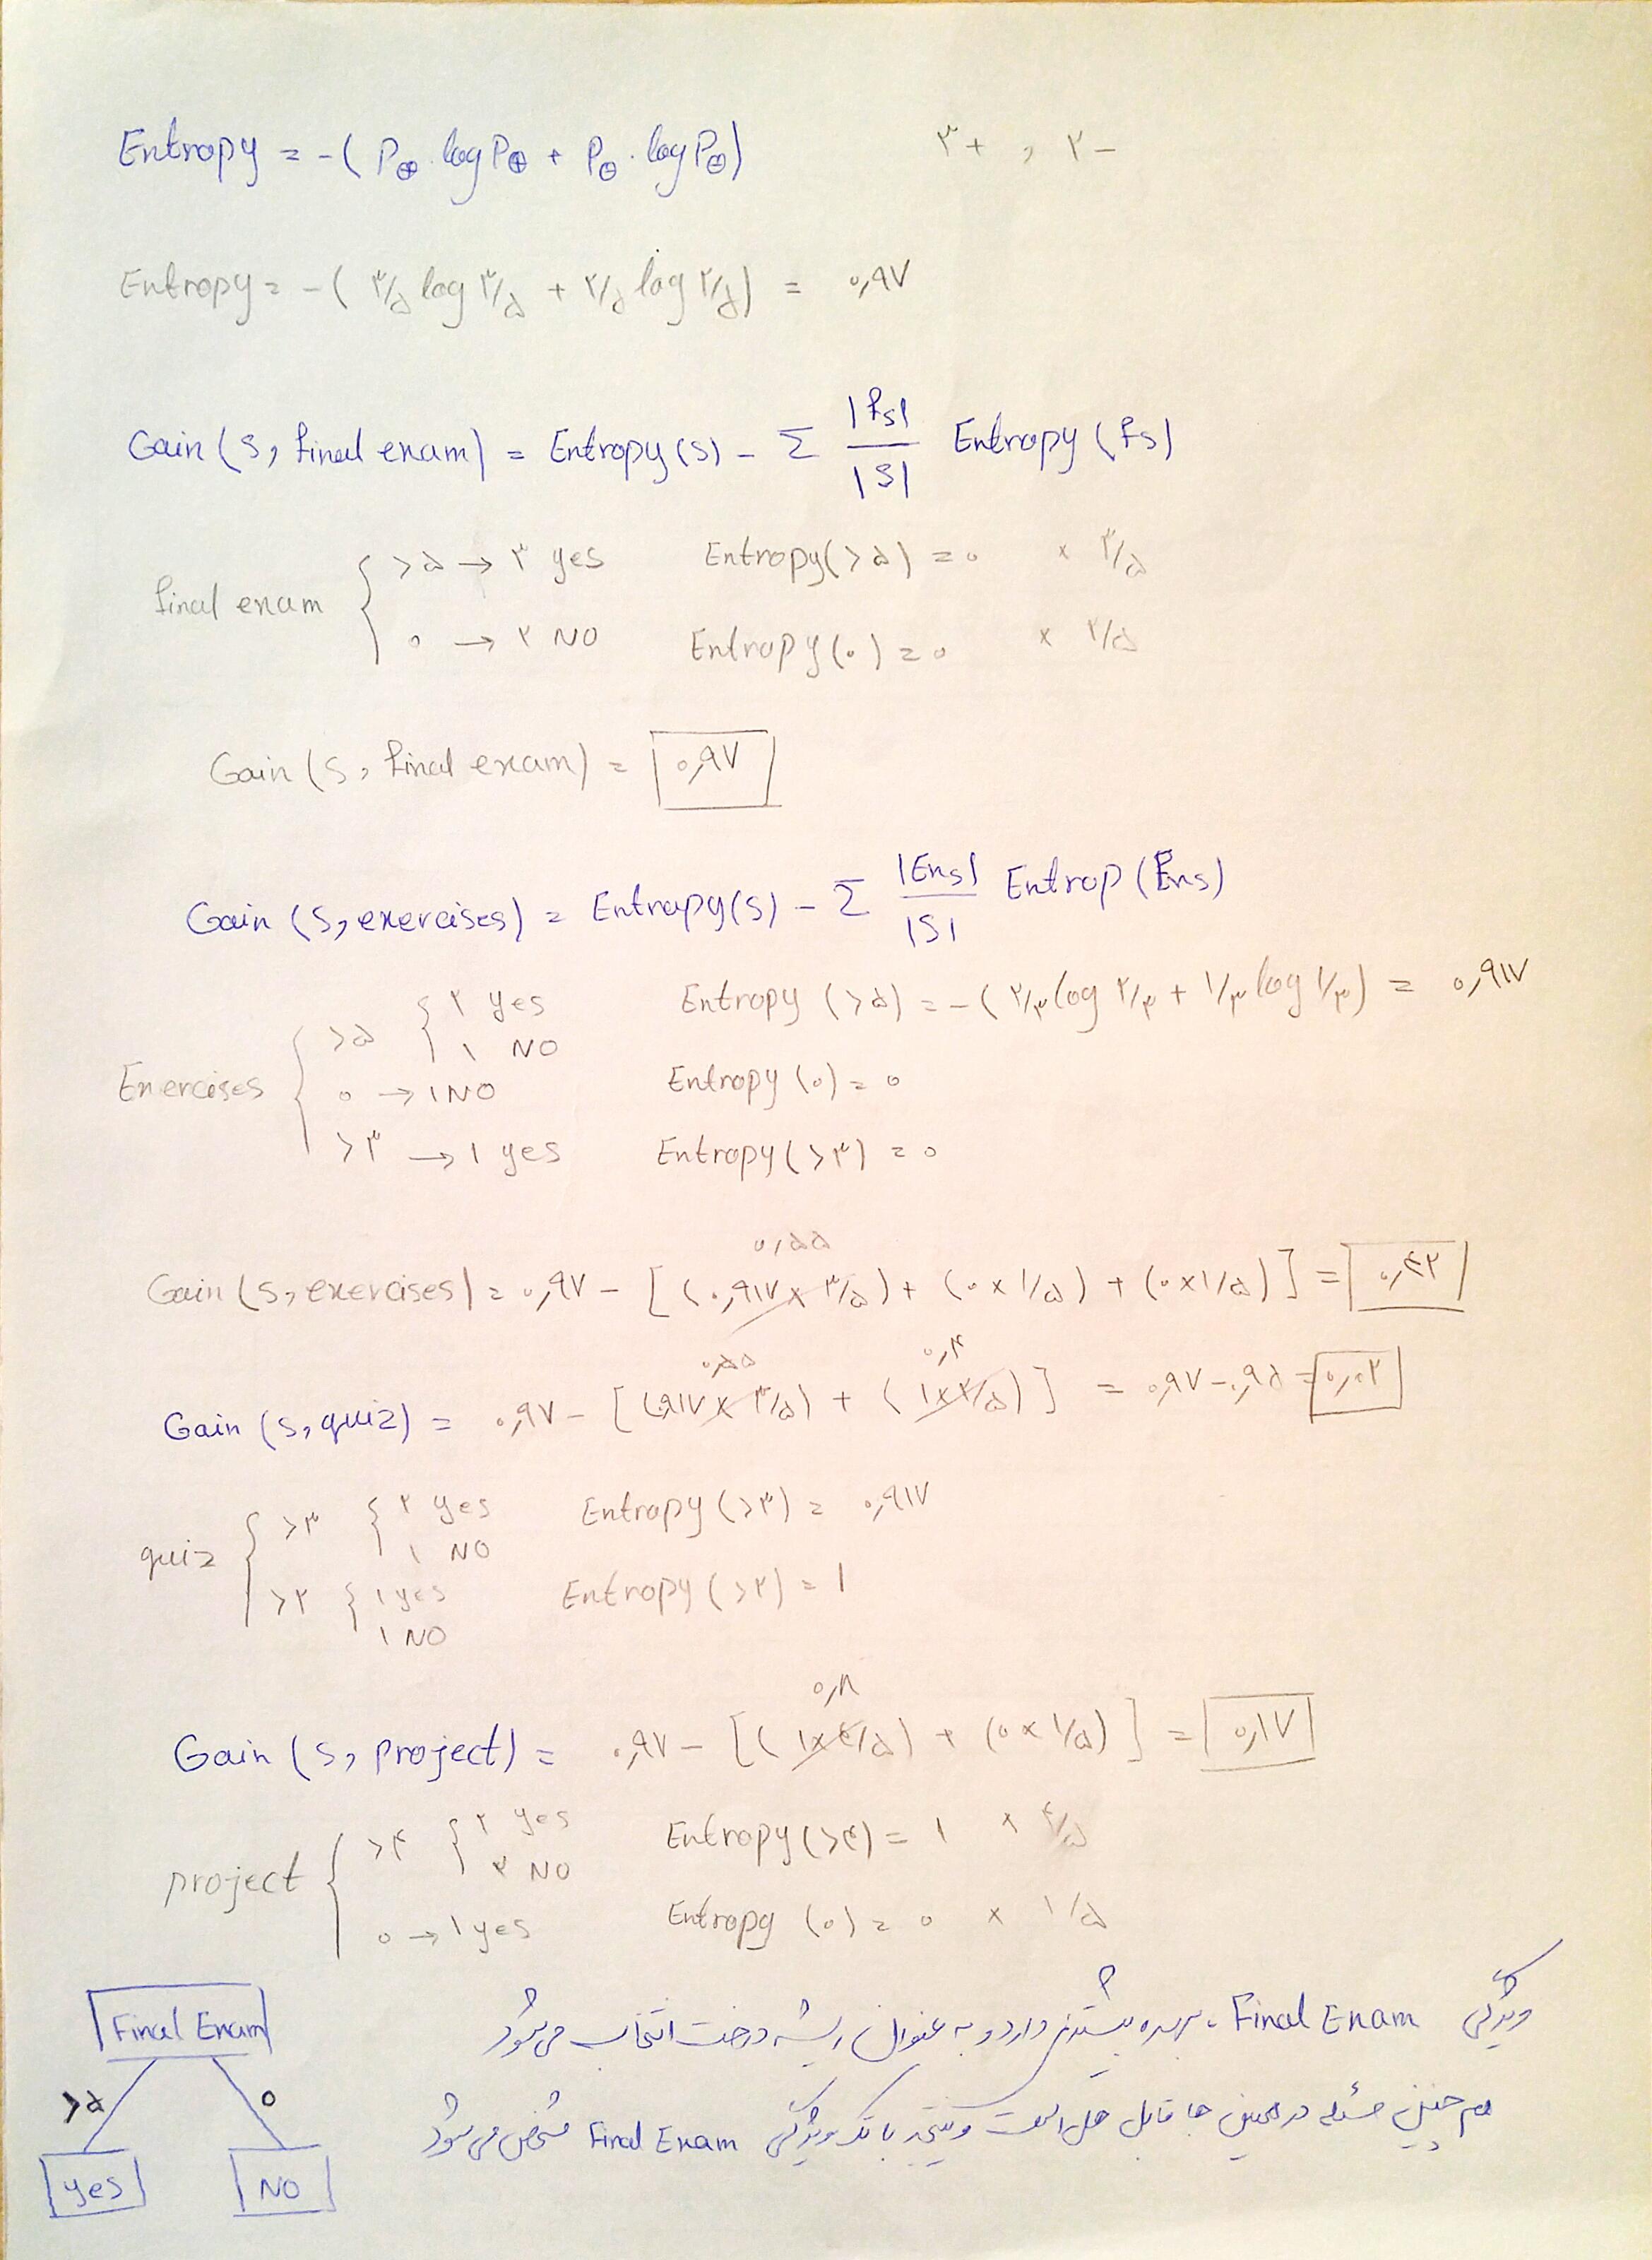 Entropy = -( P⊕ . log P⊕ + P⊖ . log P⊖ )      ۳+ , ۲-
Entropy = -( ۳/۵ log ۳/۵ + ۲/۵ log ۲/۵ ) = ۰,۹۷
Gain (S, final exam) = Entropy (S) - Σ |fs| / |S| Entropy (fs)
final exam { >۵ → ۳ yes    Entropy(>۵) = ۰    × ۳/۵
۰ → ۲ NO    Entropy(۰) = ۰    × ۲/۵
Gain (S, final exam) = ۰,۹۷
Gain (S, exercises) = Entropy(S) - Σ |Exs| / |S| Entrop (Exs)
Exercises { >۵ { ۲ yes    Entropy (>۵) = -( ۲/۳ log ۲/۳ + ۱/۳ log ۱/۳ ) = ۰,۹۱۷
۱ NO
۰ → ۱ NO    Entropy (۰) = ۰
>۳ → ۱ yes    Entropy (>۳) = ۰
۰,۵۵
Gain (S, exercises) = ۰,۹۷ - [ ( ۰,۹۱۷ × ۳/۵ ) + ( ۰ × ۱/۵ ) + ( ۰ × ۱/۵ ) ] = ۰,۴۲
۰,۵۵    ۰,۴
Gain (S, quiz) = ۰,۹۷ - [ ( ,۹۱۷ × ۳/۵ ) + ( ۱ × ۲/۵ ) ] = ۰,۹۷ - ۰,۹۵ = ۰,۰۲
quiz { >۳ { ۲ yes    Entropy (>۳) = ۰,۹۱۷
۱ NO
>۲ { ۱ yes    Entropy (>۲) = ۱
۱ NO
۰,۸
Gain (S, project) = ۰,۹۷ - [ ( ۱ × ۴/۵ ) + ( ۰ × ۱/۵ ) ] = ۰,۱۷
project { >۴ { ۲ yes    Entropy (>۴) = ۱    × ۴/۵
۲ NO
۰ → ۱ yes    Entropy (۰) = ۰    × ۱/۵
ویژگی Final Exam، بهره بیشتری دارد و به عنوان ریشه درخت انتخاب می‌شود
هم چنین مسئله در همین جا قابل حل است و نتیجه با تک ویژگی Final Exam مشخص می‌شود
Final Exam
>۵    ۰
yes    NO